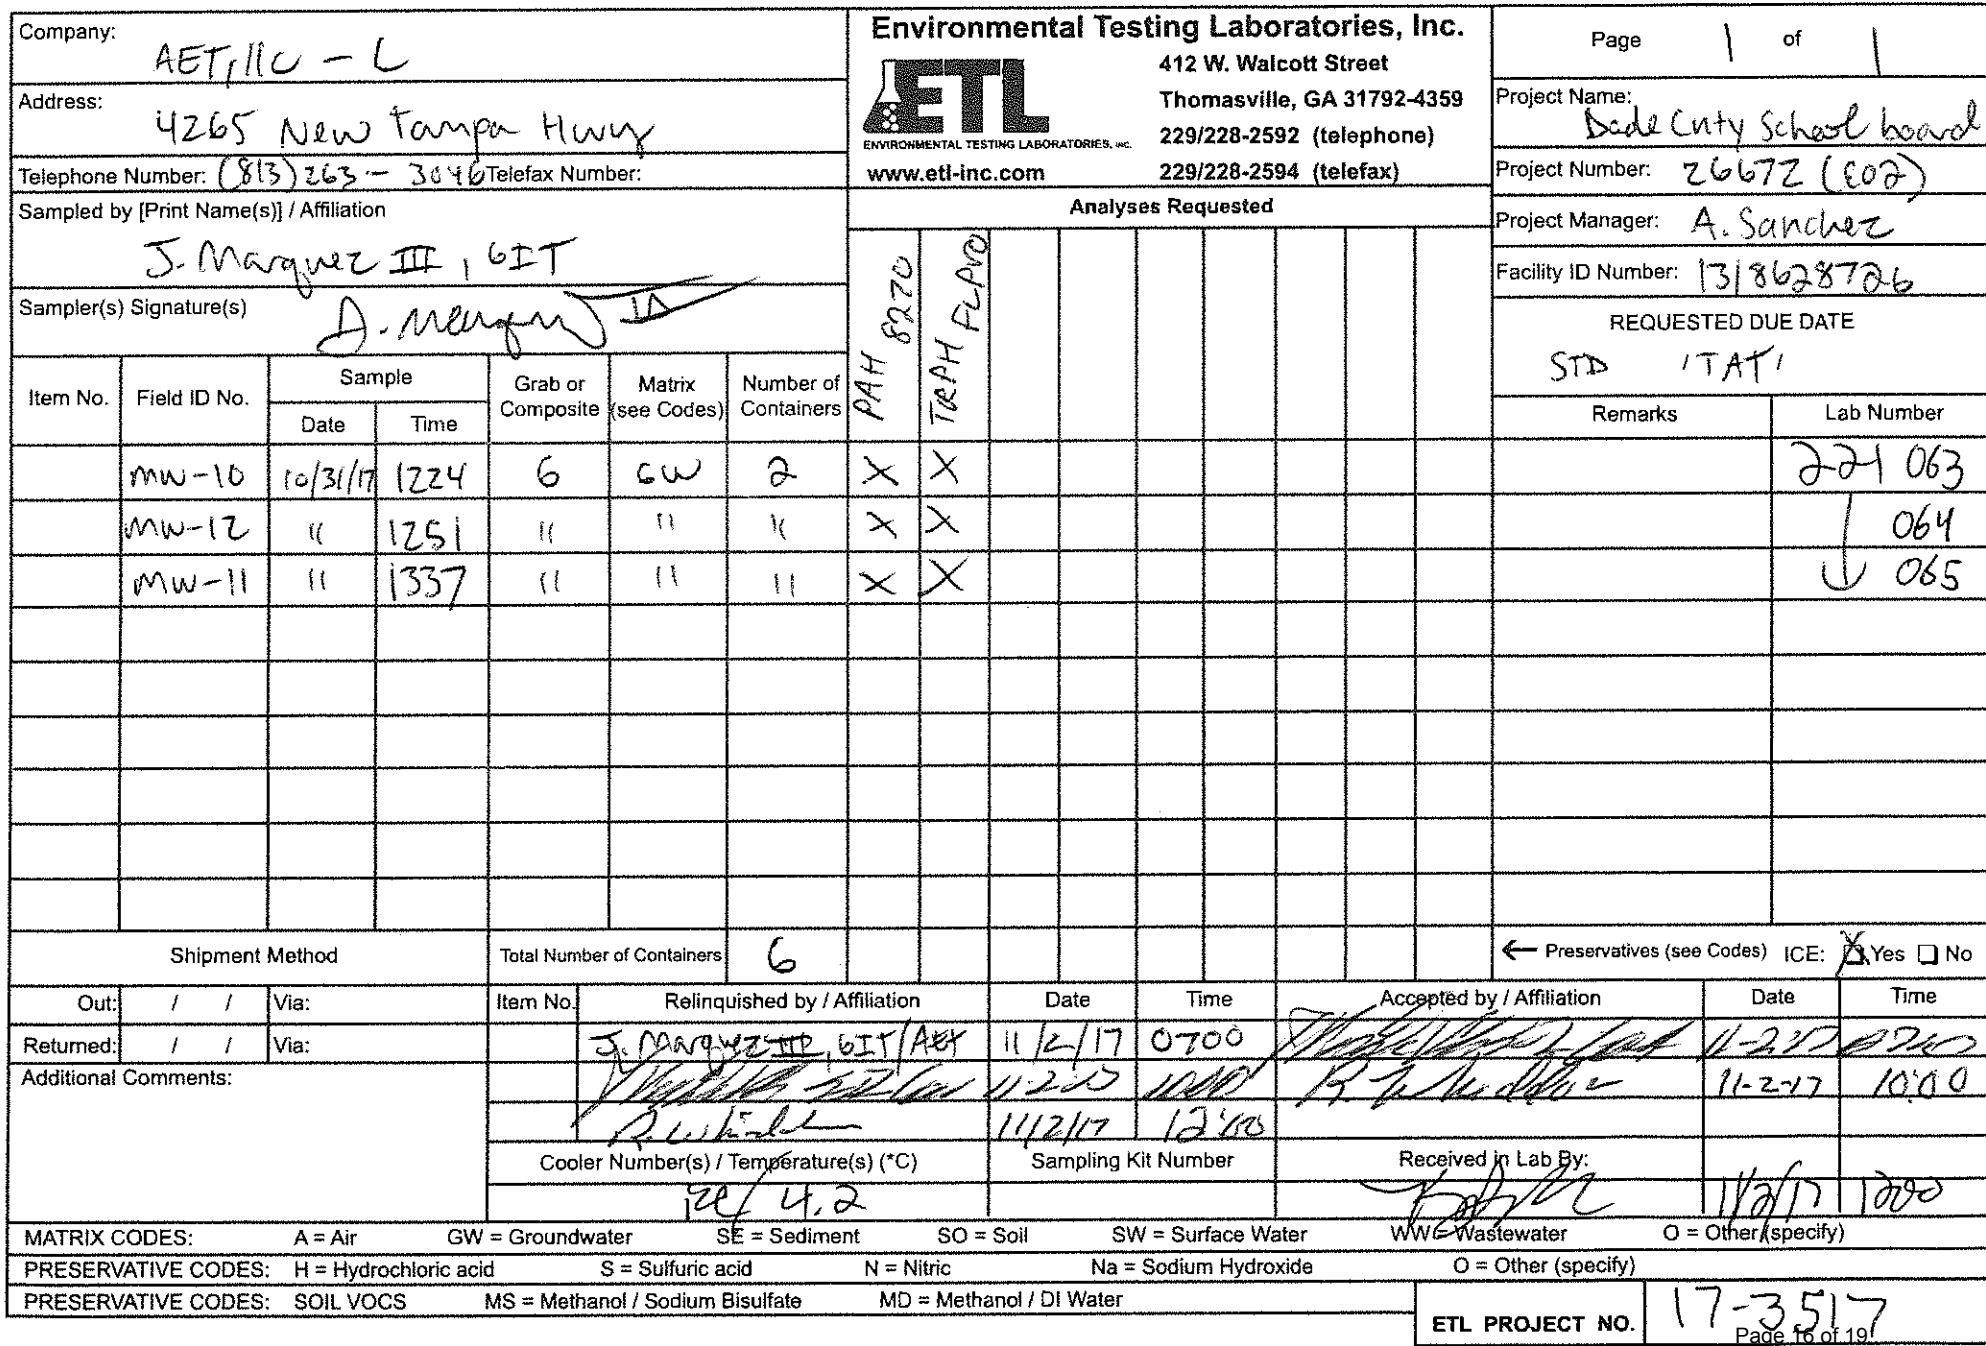 Company: AET, llc - L
Address: 4265 New Tampa Hwy
Telephone Number: (813) 263 - 3046 Telefax Number:
Sampled by [Print Name(s)] / Affiliation
J. Marquez III, GIT
Sampler(s) Signature(s)
Environmental Testing Laboratories, Inc.
ETL
ENVIRONMENTAL TESTING LABORATORIES, INC.
www.etl-inc.com
412 W. Walcott Street
Thomasville, GA 31792-4359
229/228-2592 (telephone)
229/228-2594 (telefax)
Page 1 of 1
Project Name: Dade Cnty School board
Project Number: 26672 (E02)
Project Manager: A. Sanchez
Facility ID Number: 1318628726
REQUESTED DUE DATE
STD 'TAT'
Analyses Requested
PAH 8270
TRPH FLPRO
Item No. Field ID No. Sample Date Time Grab or Composite Matrix (see Codes) Number of Containers Remarks Lab Number
MW-10 10/31/17 1224 G GW 2 X X 221 063
MW-12 " 1251 " " " X X 064
MW-11 " 1337 " " " X X 065
Shipment Method Total Number of Containers 6 ← Preservatives (see Codes) ICE: X Yes No
Out: / / Via: Item No. Relinquished by / Affiliation Date Time Accepted by / Affiliation Date Time
Returned: / / Via: J. Marquez III, GIT/AET 11/2/17 0700 11-2-17 0700
Additional Comments: 11-2-17 1000 11-2-17 10:00
11/2/17 12:00
Cooler Number(s) / Temperature(s) (*C) Sampling Kit Number Received in Lab By:
ice/ 4.2 11/2/17 1200
MATRIX CODES: A = Air GW = Groundwater SE = Sediment SO = Soil SW = Surface Water WW = Wastewater O = Other (specify)
PRESERVATIVE CODES: H = Hydrochloric acid S = Sulfuric acid N = Nitric Na = Sodium Hydroxide O = Other (specify)
PRESERVATIVE CODES: SOIL VOCS MS = Methanol / Sodium Bisulfate MD = Methanol / DI Water
ETL PROJECT NO. 17-3517
Page 16 of 19